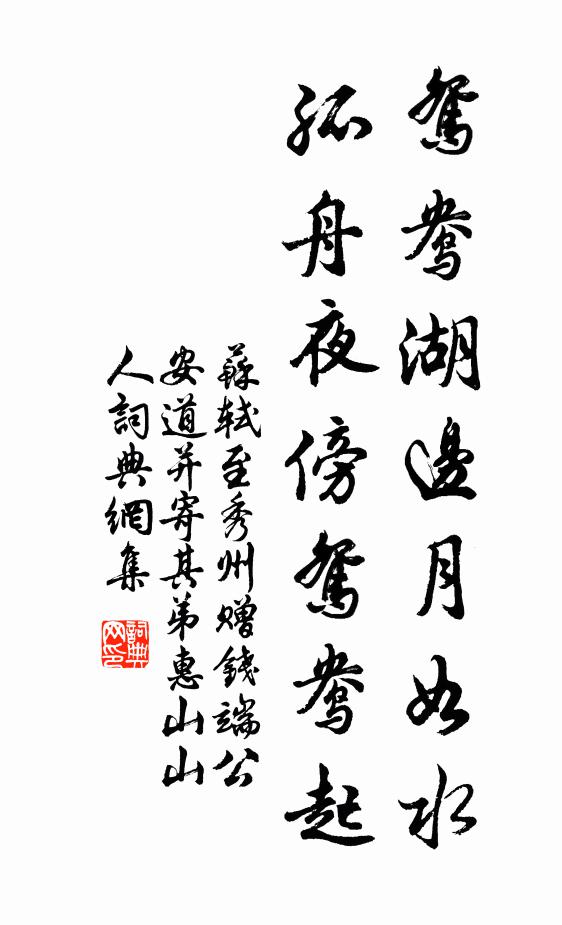 鴛鴦湖邊月如水
孤舟夜傍鴛鴦起
蘇軾至秀州贈錢端公
安道并寄其弟惠山山
人詞典網集
詞典
网印